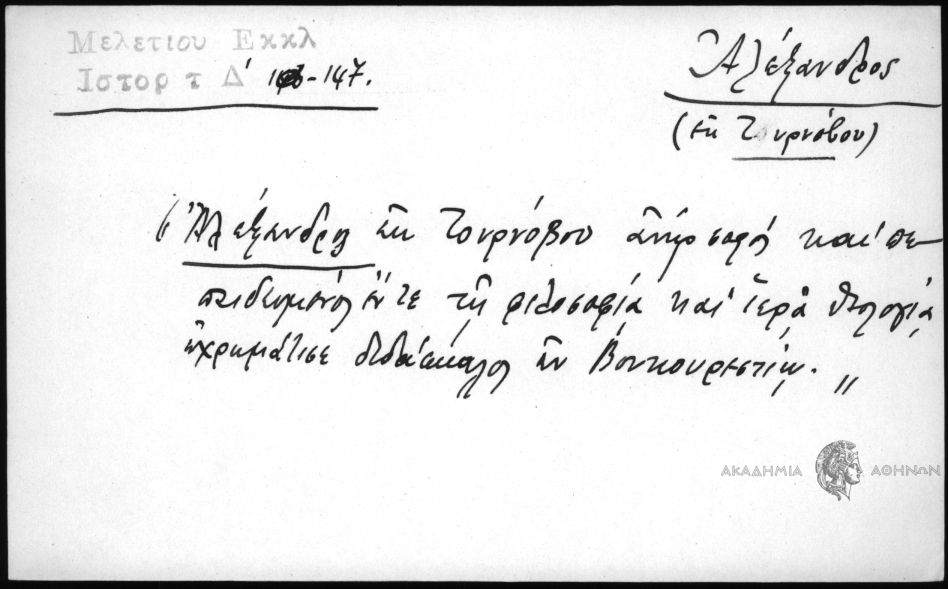 Μελετίου Εκκλ
Ιστορ τ Δ' -147.
Ἀλέξανδρος
(ἐκ Τουρνόβου)
"Ἀλέξανδρος ἐκ Τουρνόβου ἀνὴρ σοφός καὶ πε-
παιδευμένος ἔν τε τῇ φιλοσοφίᾳ καὶ ἱερᾷ θεολογίᾳ
ἐχρημάτισε διδάσκαλος ἐν Βουκουρεστίῳ."
ΑΚΑΔΗΜΙΑ ΑΘΗΝΩΝ